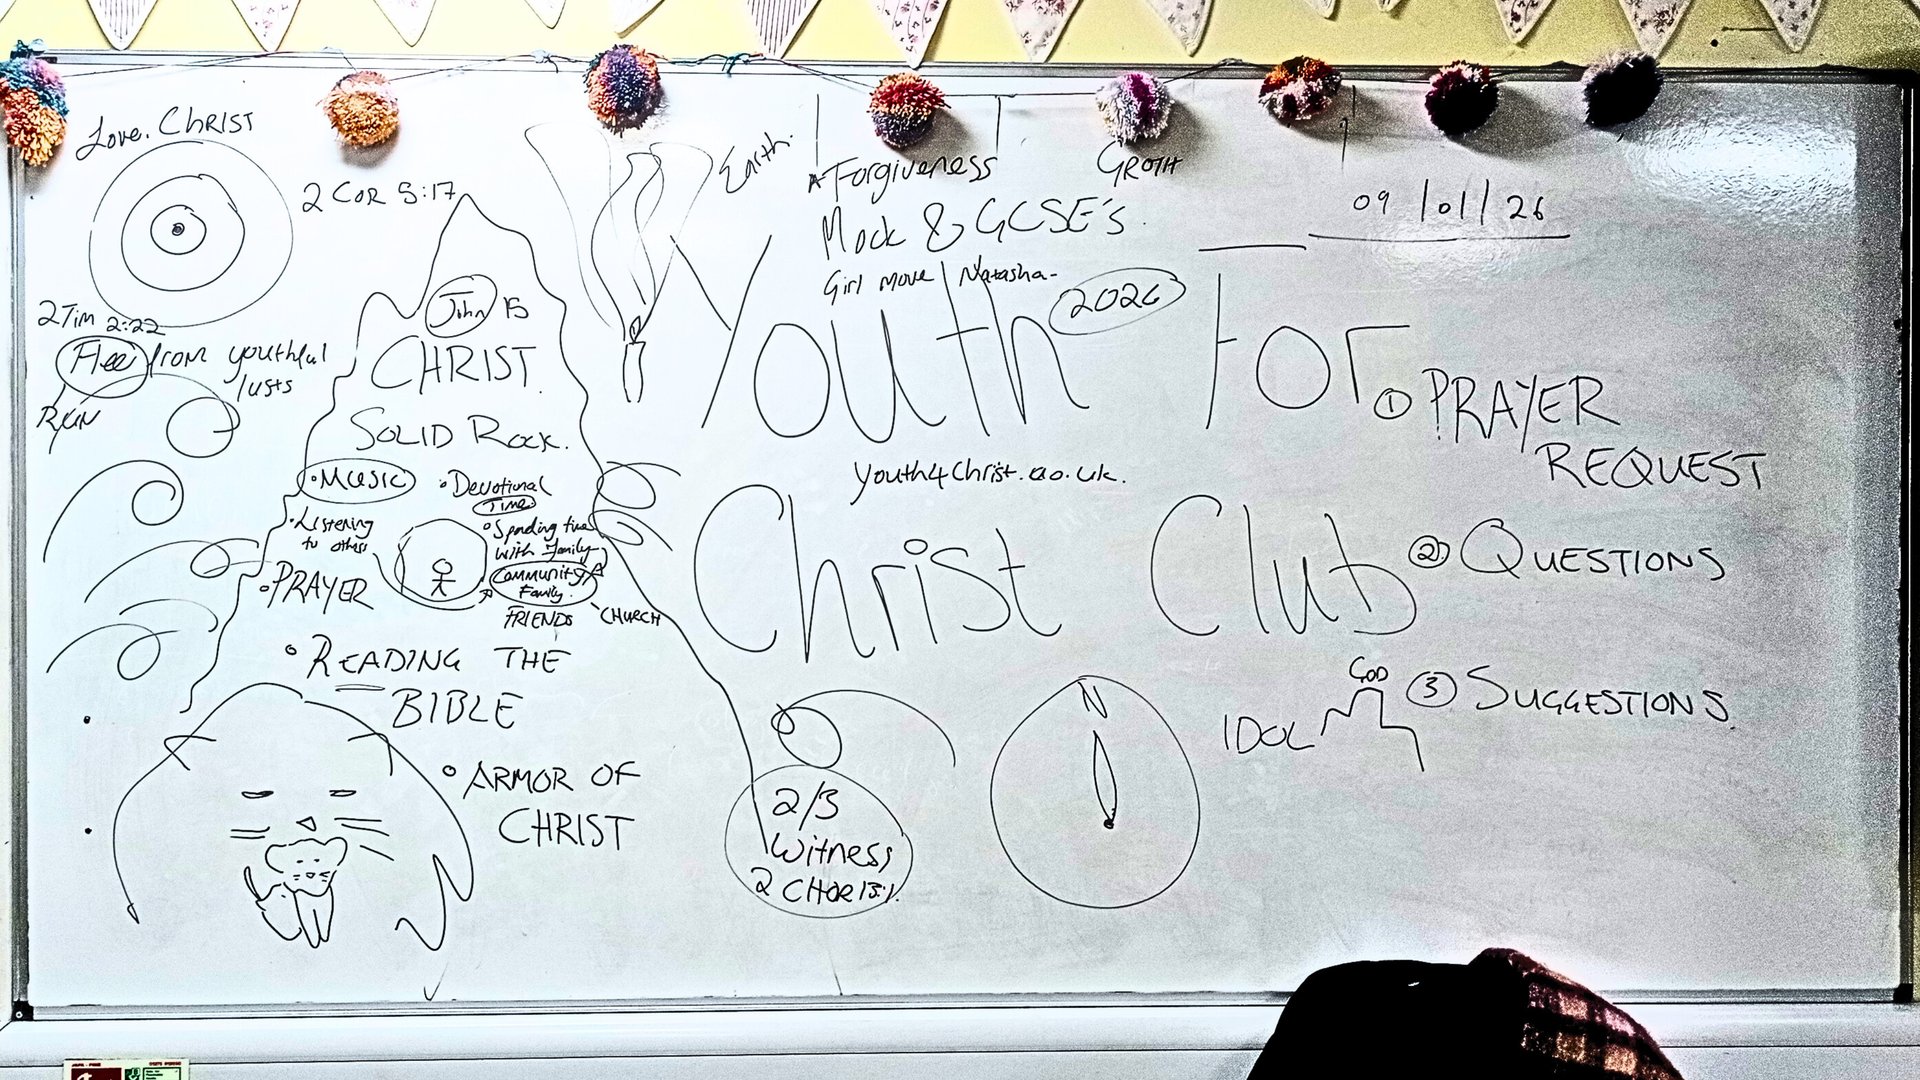 Love. CHRIST
2 COR 5:17
2 Tim 2:22
Flee from youthful
lusts
RUN
John 15
CHRIST.
SOLID ROCK.
• MUSIC
• Devotional
Time
• Listening
to others
• Spending time
with Family
Community
Family.
FRIENDS
CHURCH
• PRAYER
• READING THE
BIBLE
• ARMOR OF
CHRIST
Earth.
Forgiveness
GROTH
Mock & GCSE's.
Girl move Natasha-
2026
09/01/26
Youth For
youth4Christ.co.uk.
Christ Club
① PRAYER
REQUEST
② QUESTIONS
③ SUGGESTIONS
GOD
IDOL
N
2/3
Witness
2 CHOR 13:1.